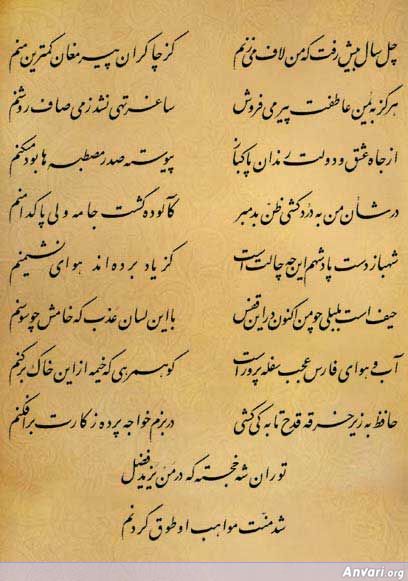 چل سال بیش رفت که من لاف می زنم کز چاکران پیر مغان کمترین منم
هرگز به یمن عاطفت پیر می فروش ساغر تهی نشد ز می صاف روشنم
از جاه عشق و دولت رندان پاکباز پیوسته صدر مصطبه ها بود مسکنم
در شأن من به دردکشی ظن بد مبر کآلوده گشت جامه ولی پاکدامنم
شهباز دست پادشهم این چه حالت است کز یاد برده اند هوای نشیمنم
حیف است بلبلی چو من اکنون در این قفس با این لسان عذب که خامش چو سوسنم
آب و هوای فارس عجب سفله پرور است کو همرهی که خیمه از این خاک برکنم
حافظ به زیر خرقه قدح تا به کی کشی در بزم خواجه پرده ز کارت برافکنم
توران شه خجسته که در من یزید فضل
شد منت مواهب او طوق گردنم
Anvari.org